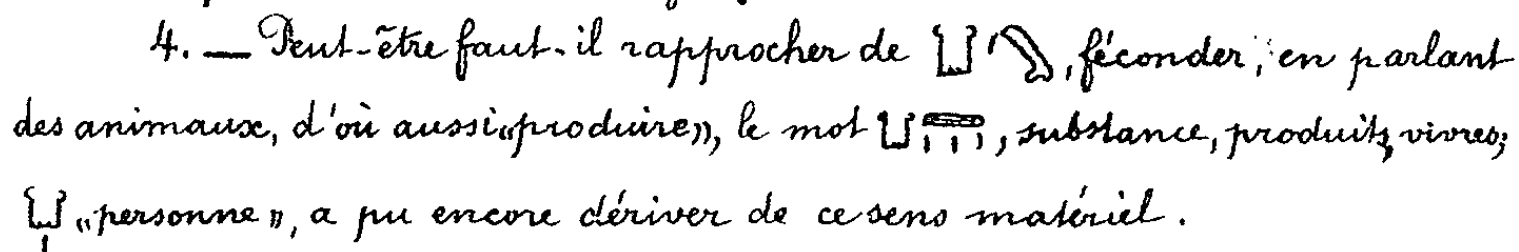 4. — Peut-être faut-il rapprocher de 𓂓, féconder, en parlant
des animaux, d'où aussi «produire», le mot 𓂓, substance, produits, vivres;
𓂓 «personne», a pu encore dériver de ce sens matériel.